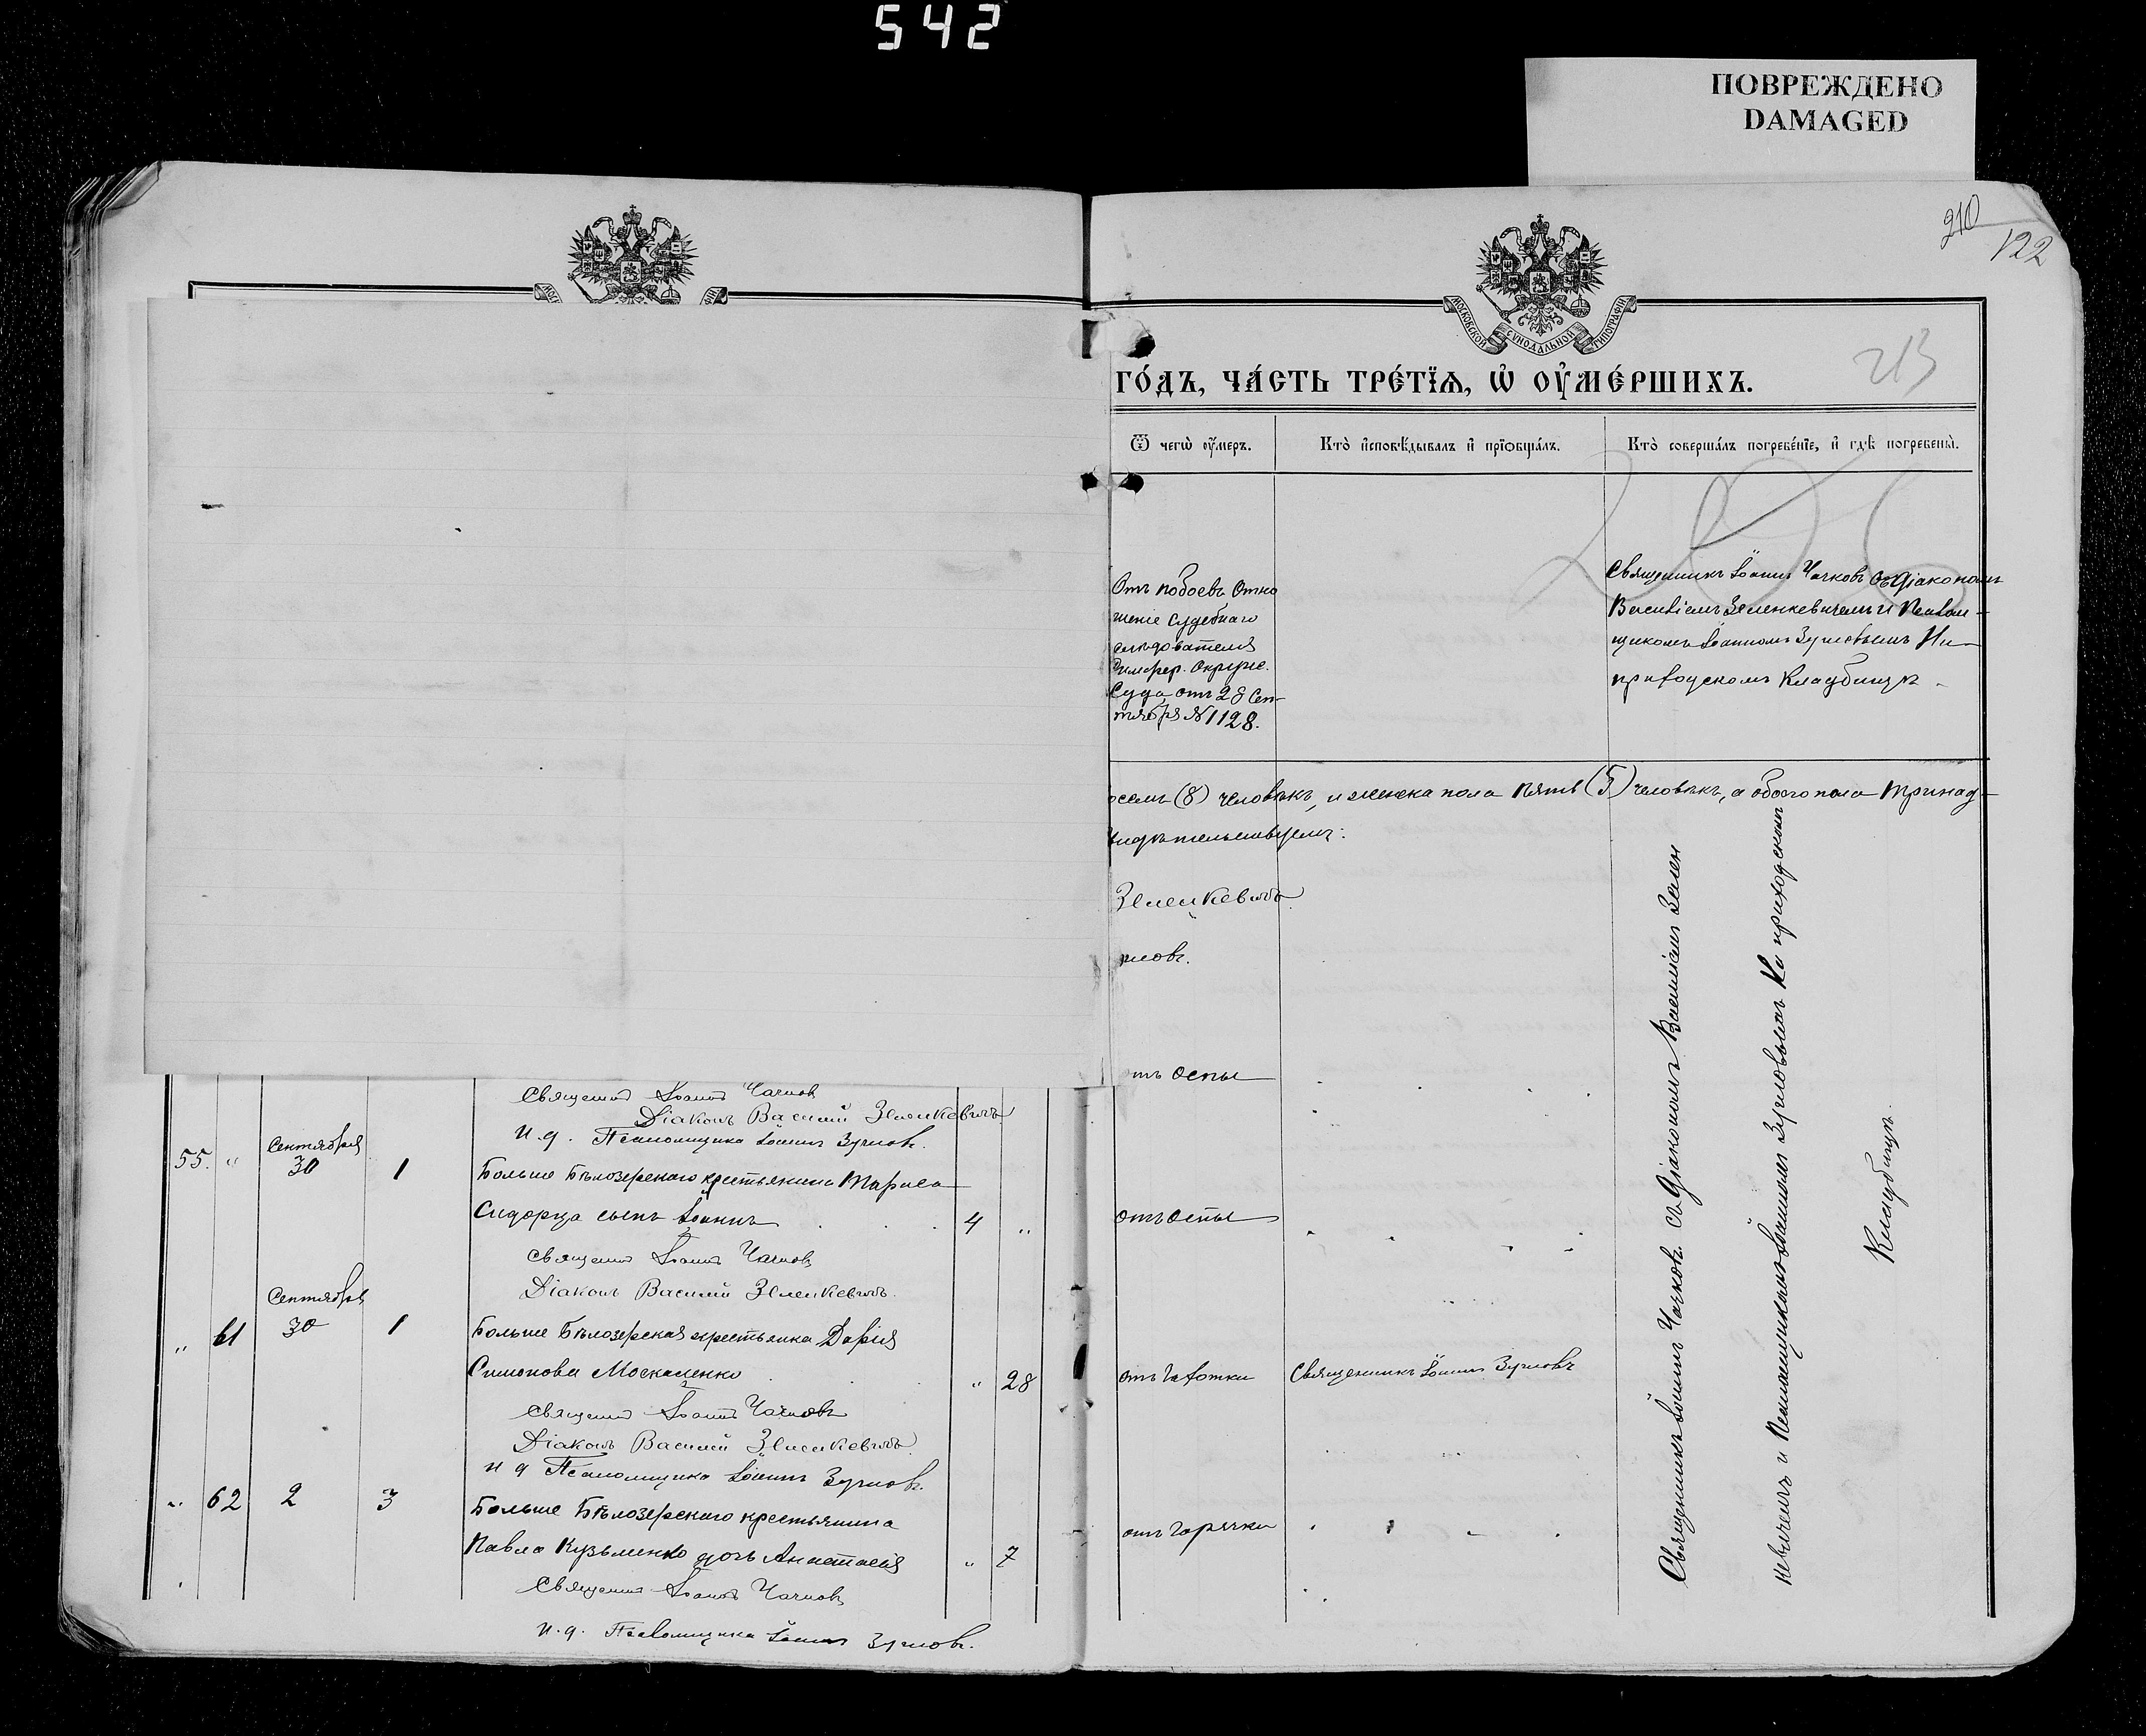 542
ПОВРЕЖДЕНО
DAMAGED
210
122
213
МОСКОВСКОЙ СѴНОДАЛЬНОЙ ТИПОГРАФІИ
ГО́ДЪ, ЧА́СТЬ ТРЕ́ТЇѦ, Ѡ҆ ОУ҆МЕ́РШИХЪ.
Ѿ чегѡ̀ оу҆́меръ.
Кто̀ и҆сповѣ́дывалъ и҆ прїѡбща́лъ.
Кто̀ соверша́лъ погребе́нїе, и҆ гдѣ̀ погребены̀.
Отъ побоевъ Отно
шеніе Судебнаго
слѣдователя
Симфер. Окружн.
Суда отъ 28 Сен-
тября № 1128.
Священникъ Іоаннъ Чачковъ съ Діакономъ
Василіемъ Зеленкевичемъ и Псалом-
щикомъ Іоанномъ Зуиовымъ На
приходскомъ кладбищѣ
осемь (8) человѣкъ, и женска пола пять (5) человѣкъ, а обоего пола тринад-
видѣтельствуемъ:
Зеленкевичъ
иовъ.
отъ оспы
Священникъ Іоаннъ Чачковъ
Діаконъ Василій Зеленкевичъ
И. д. Псаломщика Іоаннъ Зуиовъ.
55. " Сентября 30 1 Больше Бѣлозерскаго крестьянина Тараса
Сидорца сынъ Іоаннъ 4 " отъ оспы
Священникъ Іоаннъ Чачковъ
Діаконъ Василій Зеленкевичъ.
" 61 Сентября 30 1 Больше Бѣлозерская крестьянка Дарія
Симонова Москаленко " 28 отъ чахотки Священникъ Іоаннъ
Священникъ Іоаннъ Чачковъ
Діаконъ Василій Зеленкевичъ.
И д Псаломщика Іоаннъ Зуиовъ.
" 62 2 3 Больше Бѣлозерскаго крестьянина
Павла Кузьменко дочь Анастасія " 7 отъ горячки
Священникъ Іоаннъ Чачковъ
И. д. Псаломщика Іоаннъ Зуиовъ.
Священникъ Іоаннъ Чачковъ съ Діакономъ Василіемъ Зелен
кевичемъ и Псаломщикомъ Іоанномъ Зуиовымъ На приходскомъ
Кладбищѣ.